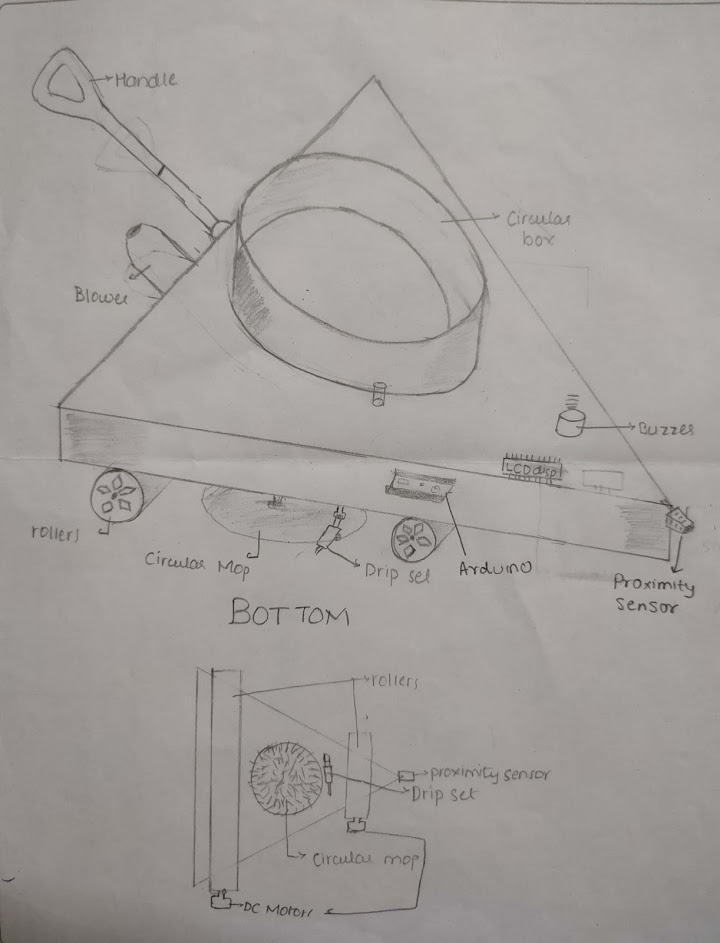 Handle
Circular
box
Blower
Buzzer
LCD disp
rollers
Circular Mop
Drip set
Arduino
Proximity
Sensor
BOTTOM
rollers
proximity sensor
Drip set
Circular mop
DC Motors